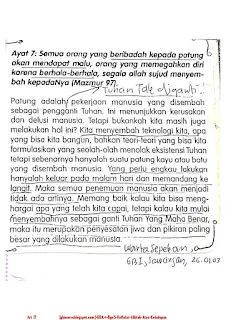 Ayat 7: Semua orang yang beribadah kepada patung
akan mendapat malu, orang yang memegahkan diri
karena berhala-berhala, segala allah sujud menyem-
bah kepadaNya (Mazmur 97).
Tuhan Tak diganti!
Patung adalah pekerjaan manusia yang disembah
sebagai pengganti Tuhan. Ini menunjukkan kerusakan
dan delusi manusia. Tetapi bukankah kita masih juga
melakukan hal ini? Kita menyembah teknologi kita, apa
yang bisa kita bangun, bahkan teori-teori yang bisa kita
formulasikan yang seolah-olah menolak eksistensi Tuhan
tetapi sebenarnya hanyalah suatu patung kayu atau batu
yang disembah manusia. Yang perlu engkau lakukan
hanyalah keluar pada malam hari dan memandang ke
langit. Maka semua penemuan manusia akan menjadi
tidak ada artinya. Memang baik kalau kita bisa meng-
hargai apa yang telah kita capai, tetapi kalau kita mulai
menyembahnya sebagai ganti Tuhan Yang Maha Benar,
maka itu merupakan penyesatan jiwa dan pikiran paling
besar yang dilakukan manusia.
Warta Sepekan,
GBI, Sawangan, 26.01.03